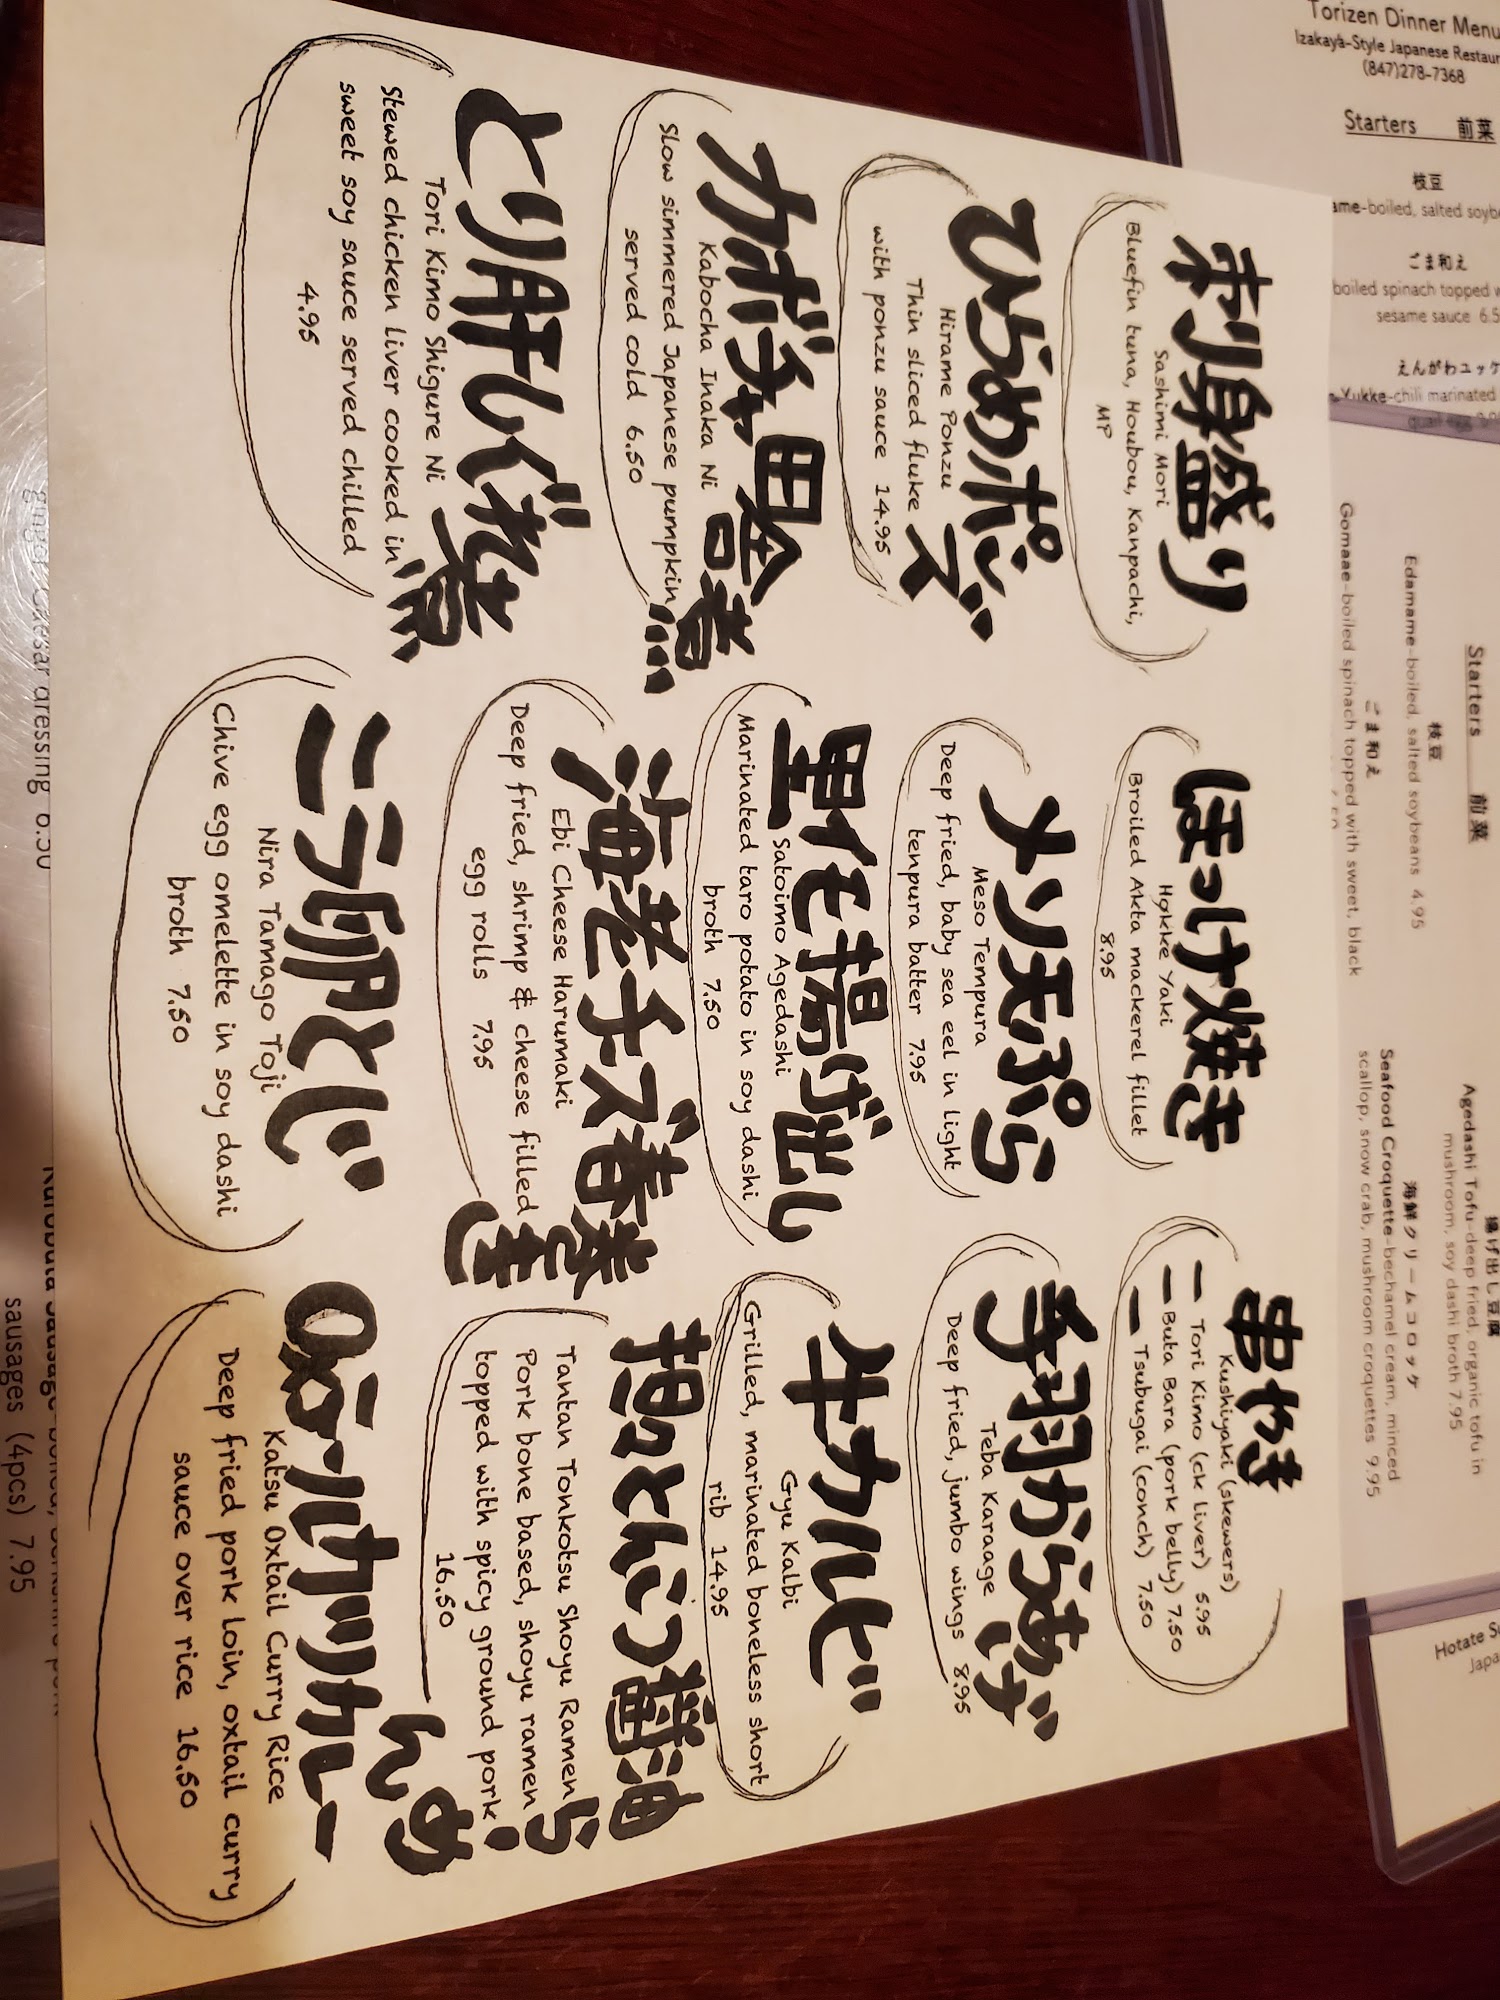 刺身盛り
Sashimi Mori
Bluefin tuna, Houbou, Kanpachi,
MP
ひらめポン
ズ
Hirame Ponzu
Thin sliced fluke
with ponzu sauce 14.95
カボチャ田舎
煮
Kabocha Inaka Ni
Slow simmered Japanese pumpkin
served cold 6.50
とり肝しぐれ煮
Tori Kimo Shigure Ni
Stewed chicken liver cooked in
sweet soy sauce served chilled
4.95
ほっけ焼き
Hokke Yaki
Broiled Akta mackerel fillet
8.95
メソ天ぷら
Meso Tempura
Deep fried, baby sea eel in light
tenpura batter 7.95
里芋揚げ出し
Satoimo Agedashi
Marinated taro potato in soy dashi
broth 7.50
海老チーズ春巻
Ebi Cheese Harumaki
Deep fried, shrimp & cheese filled
egg rolls 7.95
ニラ卵とじ
Nira Tamago Toji
Chive egg omelette in soy dashi
broth 7.50
串やき
Kushiyaki (skewers)
Tori Kimo (ck liver) 5.95
Buta Bara (pork belly) 7.50
Tsubugai (conch) 7.50
手羽からあげ
Teba Karaage
Deep fried, jumbo wings 8.95
牛カルビ
Gyu Kalbi
Grilled, marinated boneless short
rib 14.95
担々とんこつ醤油
らーめん
Tantan Tonkotsu Shoyu Ramen
Pork bone based, shoyu ramen
topped with spicy ground pork!
16.50
カレー
Katsu Oxtail Curry Rice
Deep fried pork loin, oxtail curry
sauce over rice 16.50
Torizen Dinner Menu
Izakaya-Style Japanese Restaur
(847)278-7368
Starters 前菜
枝豆
ame-boiled, salted soyb
ごま和え
boiled spinach topped w
sesame sauce 6.5
えんがわユッケ
Yukke-chili marinated
quail egg
Starters 前菜
枝豆
Edamame-boiled, salted soybeans 4.95
ごま和え
Gomaae-boiled spinach topped with sweet, black
揚げ出し豆腐
Agedashi Tofu-deep fried, organic tofu in
mushroom, soy dashi broth 7.95
海鮮クリームコロッケ
Seafood Croquette-bechamel cream, minced
scallop, snow crab, mushroom croquettes 9.95
Hotate S
Japa
ginger Caesar dressing 6.50
sausages (4pcs) 7.95